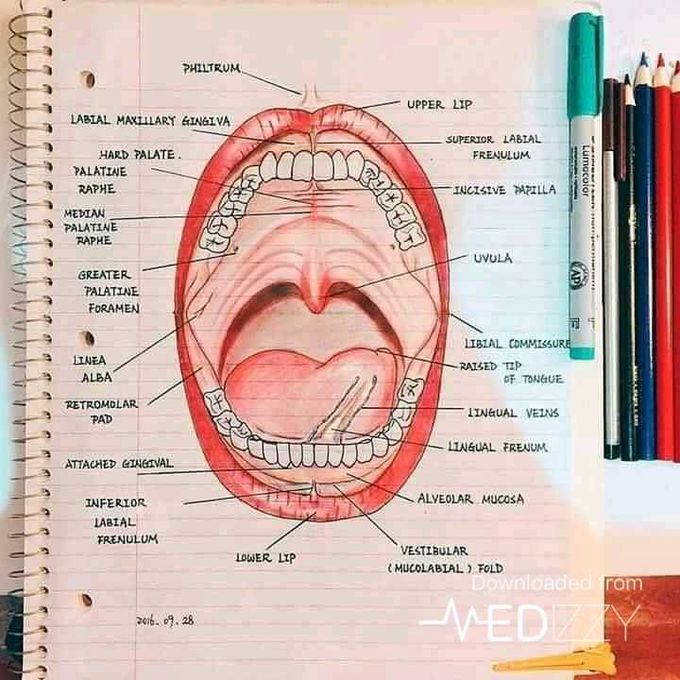 PHILTRUM
UPPER LIP
LABIAL MAXILLARY GINGIVA
SUPERIOR LABIAL
FRENULUM
HARD PALATE.
PALATINE
RAPHE
INCISIVE PAPILLA
MEDIAN
PALATINE
RAPHE
UVULA
GREATER
PALATINE
FORAMEN
LIBIAL COMMISSURE
LINEA
ALBA
RAISED TIP
OF TONGUE
RETROMOLAR
PAD
LINGUAL VEINS
LINGUAL FRENUM
ATTACHED GINGIVAL
ALVEOLAR MUCOSA
INFERIOR
LABIAL
FRENULUM
LOWER LIP
VESTIBULAR
(MUCOLABIAL) FOLD
2016.09.28
Lumocolor
Downloaded from
MEDIZZY